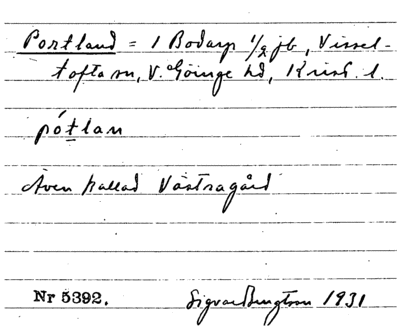 Portland = 1 Bodarp 1/2 jb, Vissel-
tofta sn, V. Göinge hd, Krist. l.
pó̀tlan
Även kallad Västragård
Nr 5392.
Sigvard Bengtson 1931